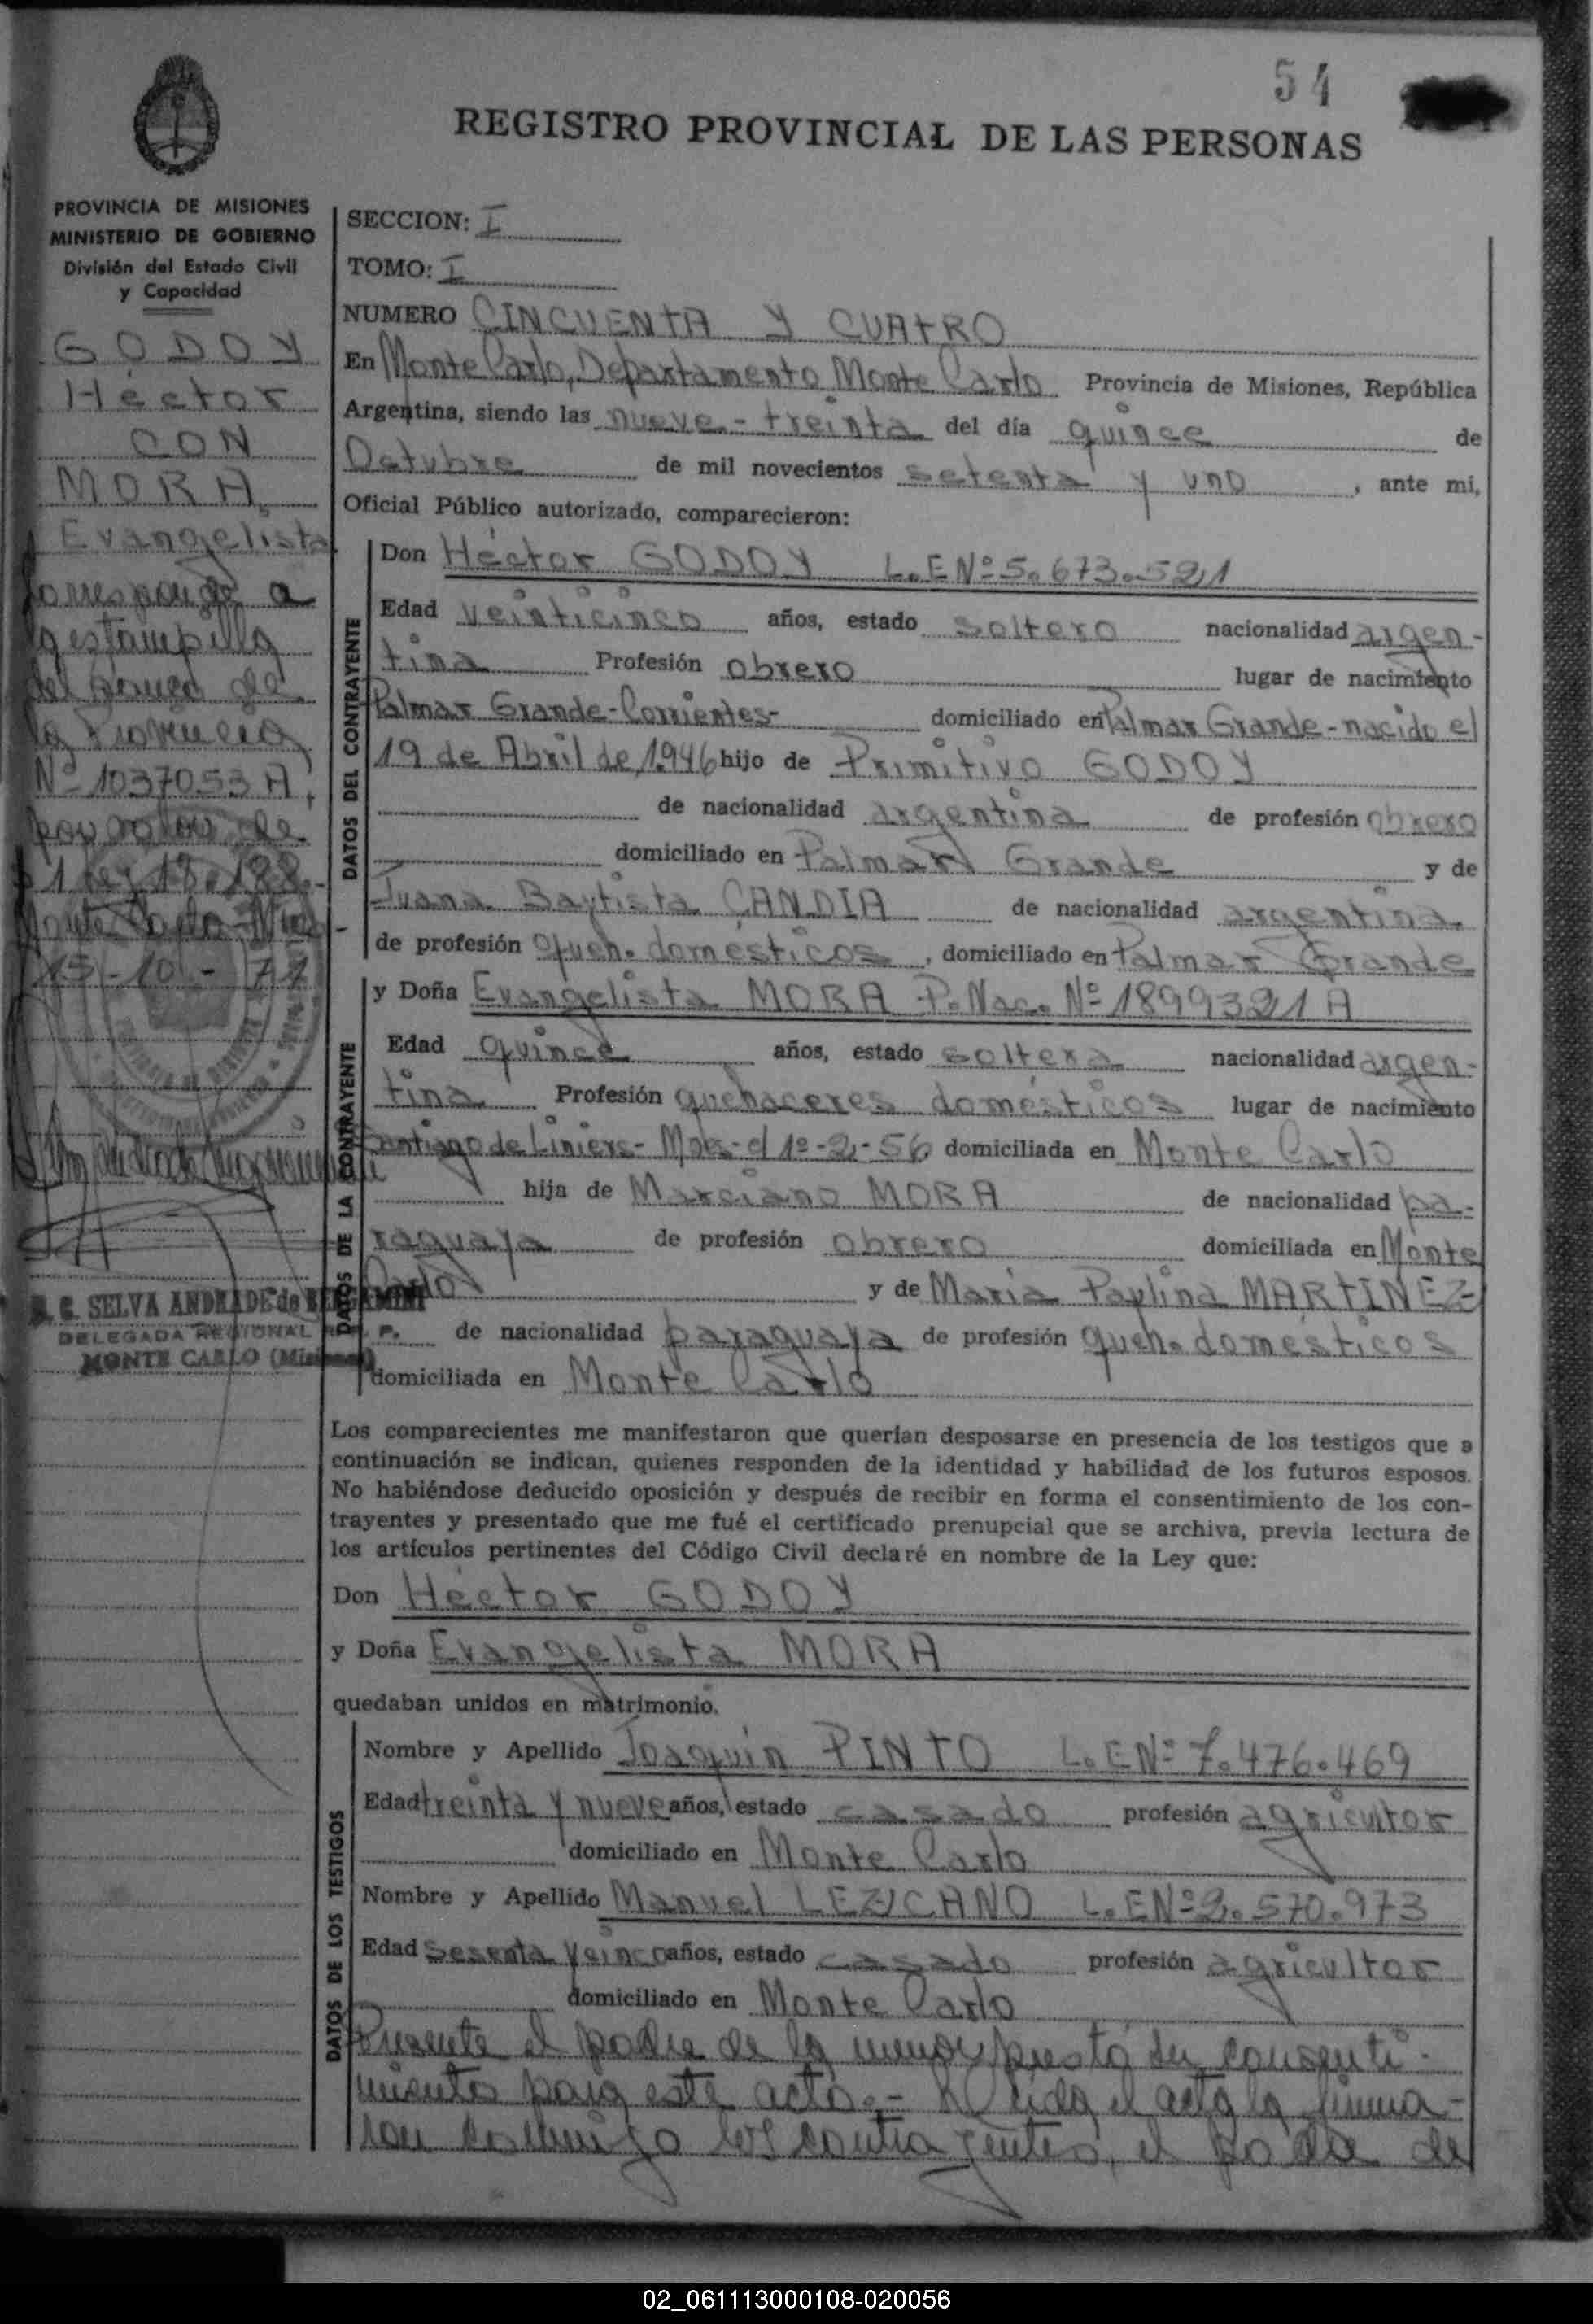 54
REGISTRO PROVINCIAL DE LAS PERSONAS
PROVINCIA DE MISIONES
MINISTERIO DE GOBIERNO
División del Estado Civil
y Capacidad
GODOY
Héctor
CON
MORA
Evangelista
Corresponde a
la estampilla
del Banco de
la Provincia
Nº 1037053 A,
por valor de
$ 1 Ley 18.188.-
Monte Carlo-Mnes
15-10-71
S. C. SELVA ANDRADE de BERGAMINI
DELEGADA REGIONAL R. P.
MONTE CARLO (Misiones)
SECCION: I
TOMO: I
NUMERO CINCUENTA Y CUATRO
En Monte Carlo, Departamento Monte Carlo Provincia de Misiones, República
Argentina, siendo las nueve-treinta del día quince de
Octubre de mil novecientos setenta y uno, ante mi,
Oficial Público autorizado, comparecieron:
DATOS DEL CONTRAYENTE
Don Héctor GODOY L.E Nº 5.673.521
Edad veinticinco años, estado soltero nacionalidad argen-
tina Profesión obrero lugar de nacimiento
Palmar Grande-Corrientes- domiciliado en Palmar Grande-nacido el
19 de Abril de 1946 hijo de Primitivo GODOY
de nacionalidad argentina de profesión obrero
domiciliado en Palmar Grande y de
Juana Bautista CANDIA de nacionalidad argentina
de profesión queh. domésticos, domiciliado en Palmar Grande
DATOS DE LA CONTRAYENTE
y Doña Evangelista MORA P. Nac. Nº 1899321 A
Edad quince años, estado soltera nacionalidad argen-
tina Profesión quehaceres domésticos lugar de nacimiento
Santiago de Liniers- Mnes- el 1º-2-56 domiciliada en Monte Carlo
hija de Marciano MORA de nacionalidad pa-
raguaya de profesión obrero domiciliada en Monte
Carlo y de Maria Paulina MARTINEZ
de nacionalidad paraguaya de profesión queh. domésticos
domiciliada en Monte Carlo
Los comparecientes me manifestaron que querían desposarse en presencia de los testigos que a
continuación se indican, quienes responden de la identidad y habilidad de los futuros esposos.
No habiéndose deducido oposición y después de recibir en forma el consentimiento de los con-
trayentes y presentado que me fué el certificado prenupcial que se archiva, previa lectura de
los artículos pertinentes del Código Civil declaré en nombre de la Ley que:
Don Héctor GODOY
y Doña Evangelista MORA
quedaban unidos en matrimonio.
DATOS DE LOS TESTIGOS
Nombre y Apellido Joaquin PINTO L.E Nº 7.476.469
Edad treinta y nueve años, estado casado profesión agricultor
domiciliado en Monte Carlo
Nombre y Apellido Manuel LEZCANO L.E Nº 2.570.973
Edad sesenta y cinco años, estado casado profesión agricultor
domiciliado en Monte Carlo
Presente el padre de la menor presta su consenti-
miento para este acto.- Leida el acta la firma-
ron conmigo los contrayentes, el padre de
02_061113000108-020056